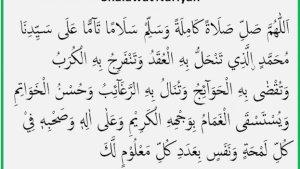 Shalawat Nariyah
اَللّٰهُمَّ صَلِّ صَلَاةً كَامِلَةً وَسَلِّمْ سَلَامًا تَآمًّا عَلَى سَيِّدِنَا
مُحَمَّدِ ࣙالَّذِي تَنْحَلُّ بِهِ الْعُقَدُ وَتَنْفَرِجُ بِهِ الْكُرَبُ
وَتُقْضَى بِهِ الْحَوَآئِجُ وَتُنَالُ بِهِ الرَّغَآئِبُ وَحُسْنُ الْخَوَاتِمِ
وَيُسْتَسْقَى الْغَمَامُ بِوَجْهِهِ الْكَرِيْمِ وَعَلٰى اٰلِهٖ وَصَحْبِهٖ فِيْ
كُلِّ لَمْحَةٍ وَنَفَسٍ بِعَدَدِ كُلِّ مَعْلُوْمٍ لَّكَ